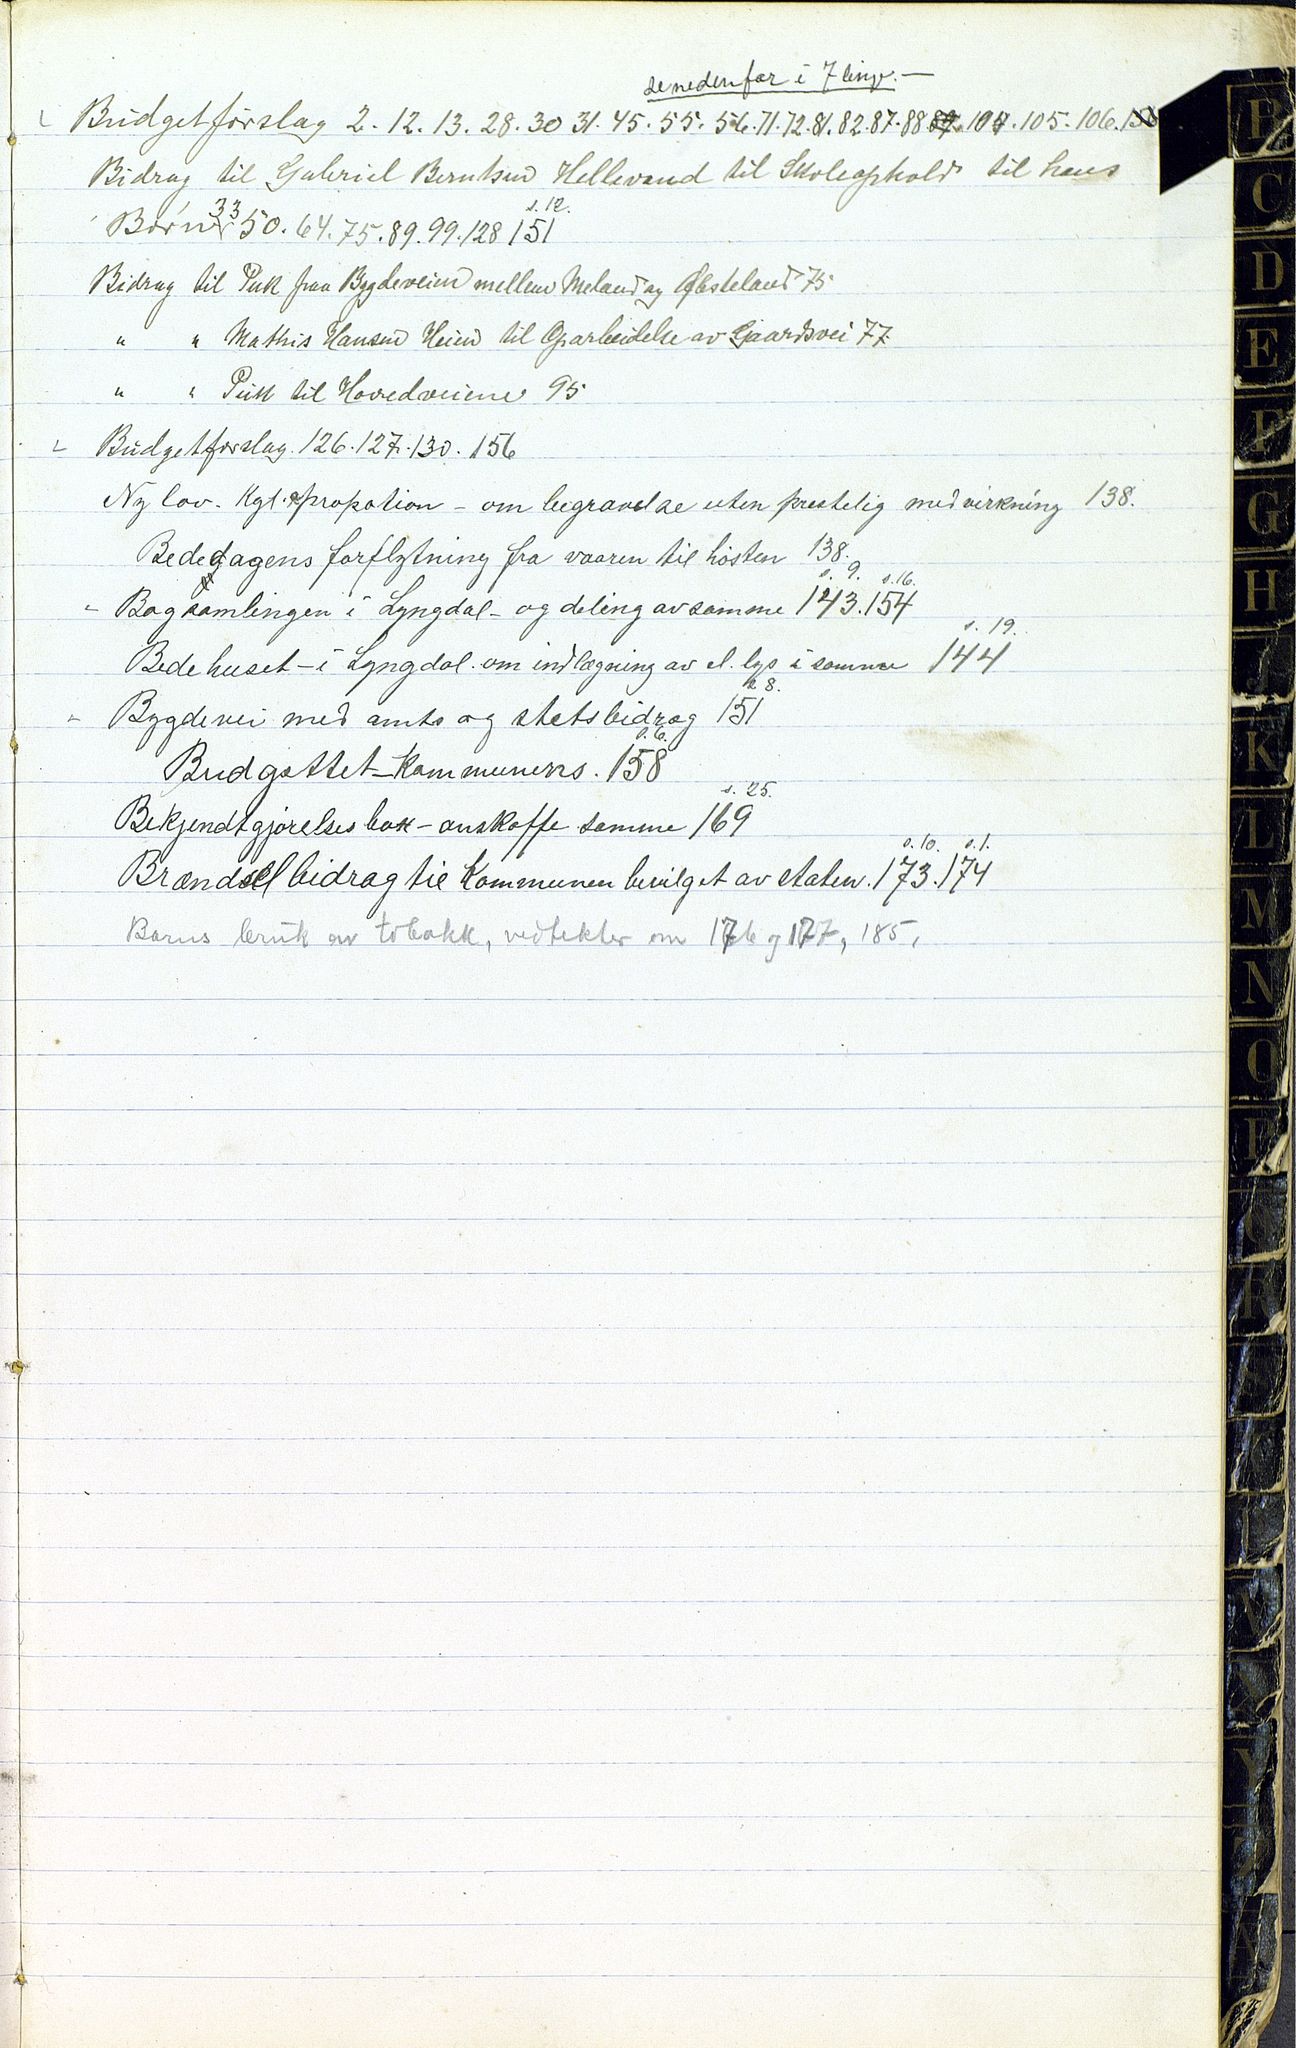 se nedenfor i 7 linje. —
Budgetforslag 2. 12. 13. 28. 30 31. 45. 55. 56. 71. 72. 81. 82. 87. 88 104. 105. 106.
Bidrag til Gabriel Berntsen Hellevand til Skoleophold til hans
Børn 33 50. 64. 75. 89. 99. 128 151 s. 12.
Bidrag til Puk fraa Bygdeveien mellem Meland og Øbsteland 75
" " Mathis Hansen Heien til Oparbeidelse av Gaardsvei 77.
" " Puk til Hovedveiene 95
Budgetforslag. 126. 127. 130. 156
Ny lov. Kgl. propotion - om begravelse uten prestelig medvirkning 138.
Bededagens forflytning fra vaaren til høsten 138.
Bogsamlingen i Lyngdal - og deling av samme 143. s. 9. 154 s. 16.
Bedehuset - i Lyngdal. om indlægning av el. lys i samme 144 s. 19.
Bygdevei med amts og statsbidrag 151 s 8.
Budgettet - Kommunens. 158 s. 6.
Bekjendtgjørelsesbok - anskaffe samme 169 s. 25.
Brændselbidrag til Kommunen bevilget av staten. 173. s. 10. 174 s. 1.
Barns bruk av tobakk, vedtekter om 176 og 177, 185,
B
C
D
E
F
G
H
J
K
L
M
N
O
P
Q
R
S
T
U
V
Y